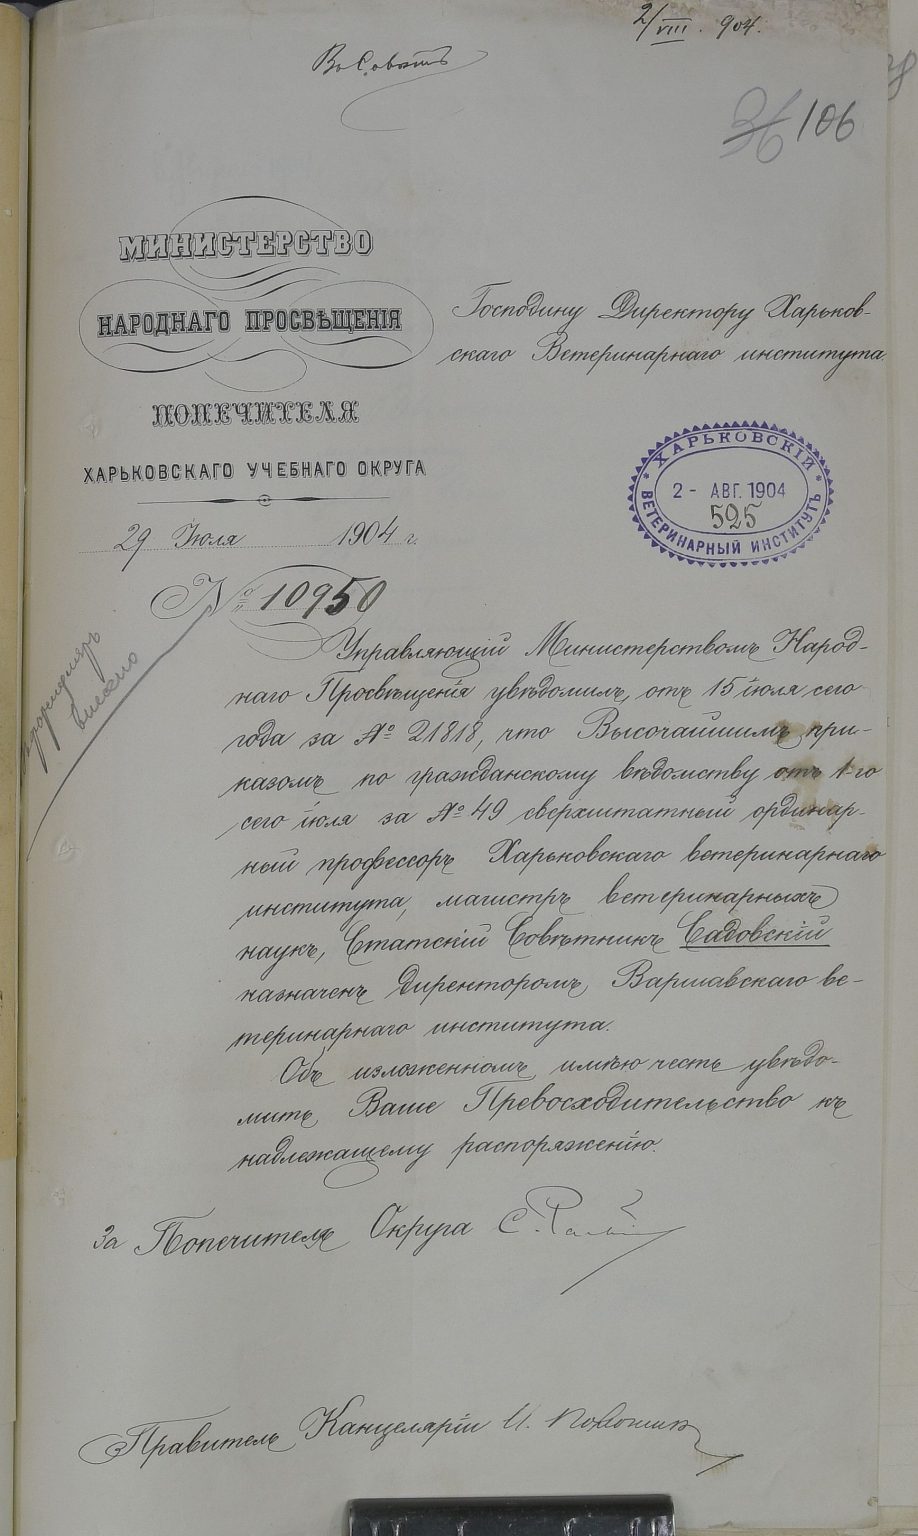 2/VIII. 904.
Въ Совѣтъ
36 106
МИНИСТЕРСТВО
НАРОДНАГО ПРОСВѢЩЕНІЯ
ПОПЕЧИТЕЛЯ
ХАРЬКОВСКАГО УЧЕБНАГО ОКРУГА
29 Іюля 1904 г.
№ 10950
Господину Директору Харьков-
скаго Ветеринарнаго института
ХАРЬКОВСКІЙ
2 - АВГ. 1904
525
ВЕТЕРИНАРНЫЙ ИНСТИТУТЪ
Управляющій Министерствомъ Народ-
наго Просвѣщенія увѣдомилъ, отъ 15 іюля сего
года за № 21818, что Высочайшимъ при-
казомъ по гражданскому вѣдомству отъ 1-го
сего іюля за № 49 сверхштатный ординар-
ный профессоръ Харьковскаго ветеринарнаго
института, магистръ ветеринарныхъ
наукъ, Статскій Совѣтникъ Садовскій
назначенъ Директоромъ Варшавскаго ве-
теринарнаго института.
Объ изложенномъ имѣю честь увѣдо-
мить Ваше Превосходительство къ
надлежащему распоряженію.
За Попечителя Округа С.
Правитель Канцеляріи И.